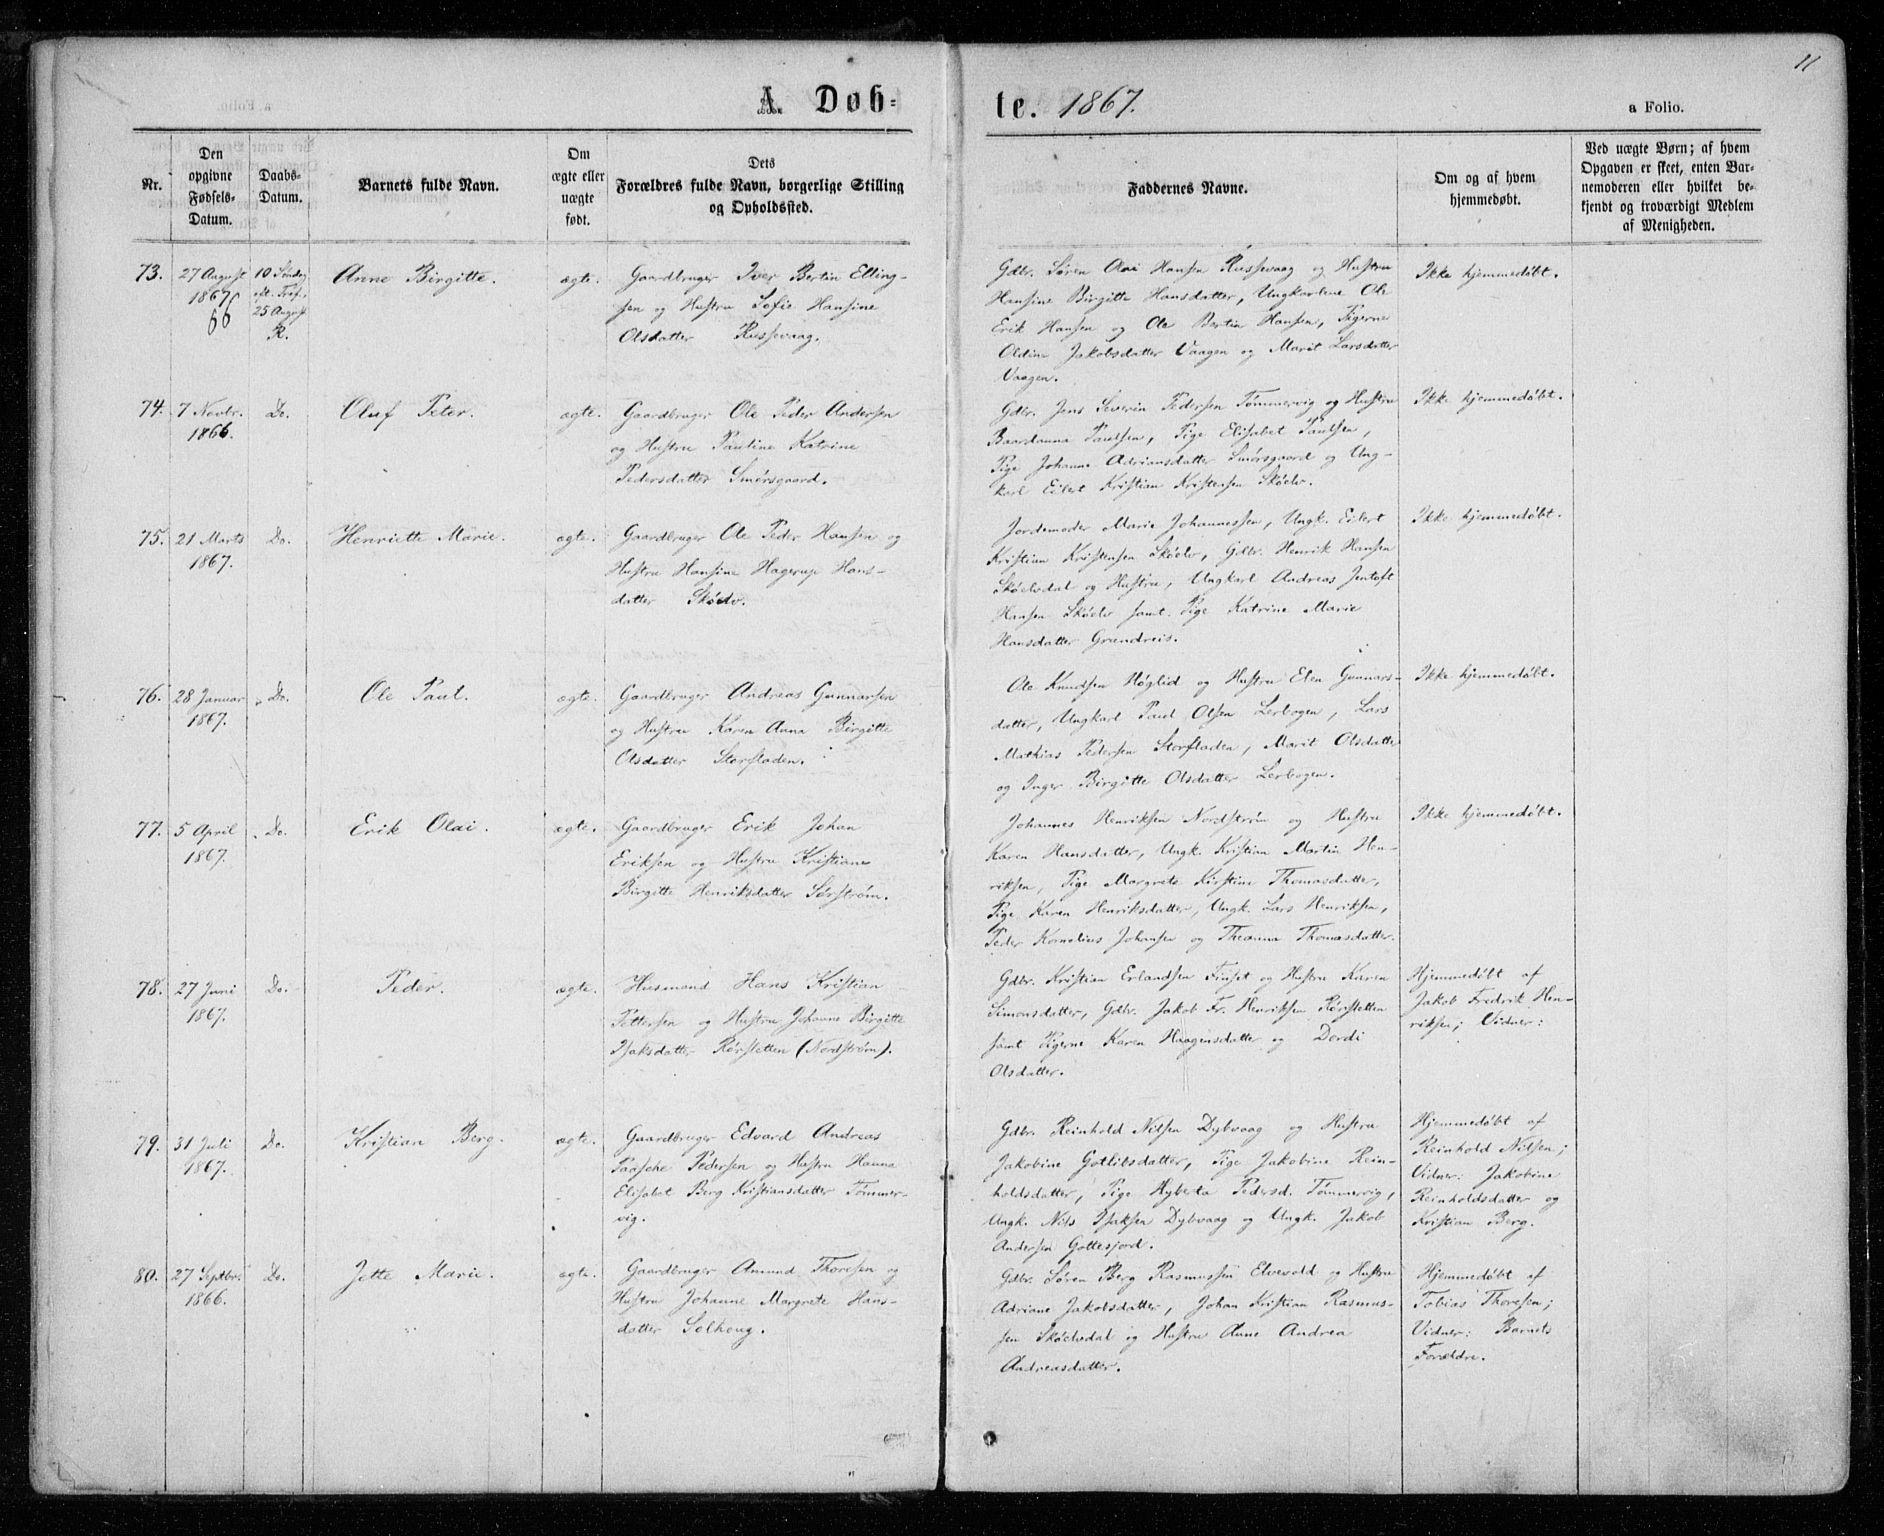 11
A. Døbte. 1867.
a Folio.
Nr.
Den opgivne Fødsels-Datum.
Daabs-Datum.
Barnets fulde Navn.
Om ægte eller uægte født.
Dets Forældres fulde Navn, borgerlige Stilling og Opholdssted.
Faddernes Navne.
Om og af hvem hjemmedøbt.
Ved uægte Børn; af hvem Opgaven er skeet, enten Barnemoderen eller hvilket bekjendt og troværdigt Medlem af Menigheden.
73.
27 August
1867
66
10 Søndag
eft. Tref.
25 August
R.
Anne Birgitte.
ægte.
Gaardbruger Iver Bertin Elling-
sen og Hustru Sofie Hansine
Olsdatter Russevaag.
Gdbr. Søren Olai Hansen Russevaag og Hustru
Hansine Birgitte Hansdatter, Ungkarlene Ole
Erik Hansen og Ole Bertin Hansen, Pigerne
Oldine Jakobsdatter Vaagen og Marit Larsdatter
Vaagen.
Ikke hjemmedøbt.
74.
7 Novbr.
1866.
Do.
Oluf Peter.
ægte.
Gaardbruger Ole Peder Andersen
og Hustru Pauline Katrine
Pedersdatter Smørsgaard.
Gdbr. Jens Severin Pedersen Tømmervig og Hustru
Baardanna Paulsen, Pige Elisabet Paulsen,
Pige Johanne Adriansdatter Smørsgaard og Ung-
karl Eilert Kristian Kristensen Skøelv.
Ikke hjemmedøbt.
75.
21 Marts
1867.
Do.
Henriette Marie.
ægte.
Gaardbruger Ole Peder Hansen og
Hustru Hansine Hagerup Hans-
datter Skøelv.
Jordemoder Marie Johannessen, Ungk. Eilert
Kristian Kristensen Skøelv, Gdbr. Henrik Hansen
Skøelvdal og Hustru, Ungkarl Andreas Jentoft
Hansen Skøelv samt Pige Katrine Marie
Hansdatter Grundreis.
Ikke hjemmedøbt.
76.
28 Januar
1867.
Do.
Ole Paul.
ægte.
Gaardbruger Andreas Gunnarsen
og Hustru Karen Anna Birgitte
Olsdatter Storsladen.
Ole Knudsen Høglid og Hustru Elen Gunnars-
datter, Ungkarl Paul Olsen Lerbogen, Lars
Mathias Pedersen Storsladen, Marit Olsdatter
og Inger Birgitte Olsdatter Lerbogen.
Ikke hjemmedøbt.
77.
5 April
1867.
Do.
Erik Olai.
ægte.
Gaardbruger Erik Johan
Eriksen og Hustru Kristiane
Birgitte Henriksdatter Sørstrøm.
Johannes Henriksen Nordstrøm og Hustru
Karen Hansdatter, Ungk. Kristian Martin Hen-
riksen, Pige Margrete Kirstine Thomasdatter,
Pige Karen Henriksdatter, Ungk. Lars Henriksen,
Peder Kornelius Johansen og Theanna Thomasdatter.
Ikke hjemmedøbt.
78.
27 Juni
1867.
Do.
Peder.
ægte.
Husmand Hans Kristian
Pettersen og Hustru Johanne Birgitte
Isaksdatter Rørstetten (Nordstrøm).
Gdbr. Kristian Erlandsen Finset og Hustru Karen
Simonsdatter, Gdbr. Jakob Fr. Henriksen Rørstetten
samt Pigerne Karen Haagensdatter og Dordi
Olsdatter.
Hjemmedøbt af
Jakob Fredrik Hen-
riksen; Vidner:
79.
31 Juli
1867.
Do.
Kristian Berg.
ægte.
Gaardbruger Edvard Andreas
Paasche Pedersen og Hustru Hanna
Elisabet Berg Kristiansdatter Tømmer-
vig.
Gdbr. Reinhold Nilsen Dybvaag og Hustru
Jakobine Gotlibsdatter, Pige Jakobine Rein-
holdsdatter, Pige Hyberta Pedersd. Tømmervig,
Ungk. Nils Isaksen Dybvaag og Ungk. Jakob
Andersen Gottesjord.
Hjemmedøbt af
Reinhold Nilsen;
Vidner: Jakobine
Reinholdsdatter og
Kristian Berg.
80.
27 Septbr.
1866.
Do.
Jette Marie.
ægte.
Gaardbruger Amund Thoresen og
Hustru Johanne Margrete Hans-
datter Solhoug.
Gdbr. Søren Berg Rasmussen Elvevold og Hustru
Adriane Jakobsdatter, Johan Kristian Rasmus-
sen Skøelvdal og Hustru Anne Andrea
Andreasdatter.
Hjemmedøbt af
Tobias Thoresen;
Vidner: Barnets
Forældre.